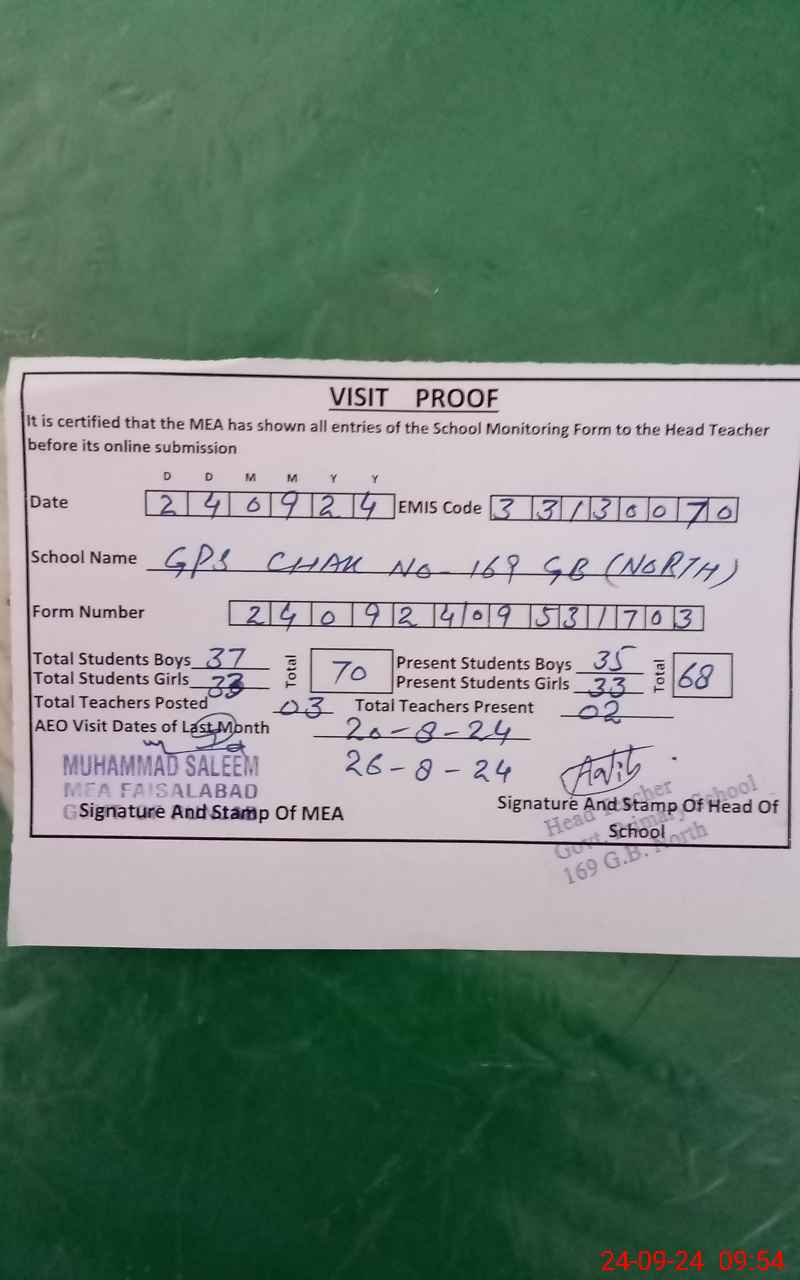 VISIT PROOF
It is certified that the MEA has shown all entries of the School Monitoring Form to the Head Teacher
before its online submission
D D M M Y Y
Date 2 4 0 9 2 4 EMIS Code 3 3 1 3 0 0 7 0
School Name GPS CHAK NO- 169 GB (NORTH)
Form Number 2 4 0 9 2 4 0 9 5 3 1 7 0 3
Total Students Boys 37 Total 70 Present Students Boys 35 Total 68
Total Students Girls 33 Present Students Girls 33
Total Teachers Posted 03 Total Teachers Present 02
AEO Visit Dates of Last Month 20-8-24
26-8-24
MUHAMMAD SALEEM
MEA FAISALABAD
Signature And Stamp Of MEA
Signature And Stamp Of Head Of
School
Head Teacher
Govt. Primary School
169 G.B. North
24-09-24 09:54